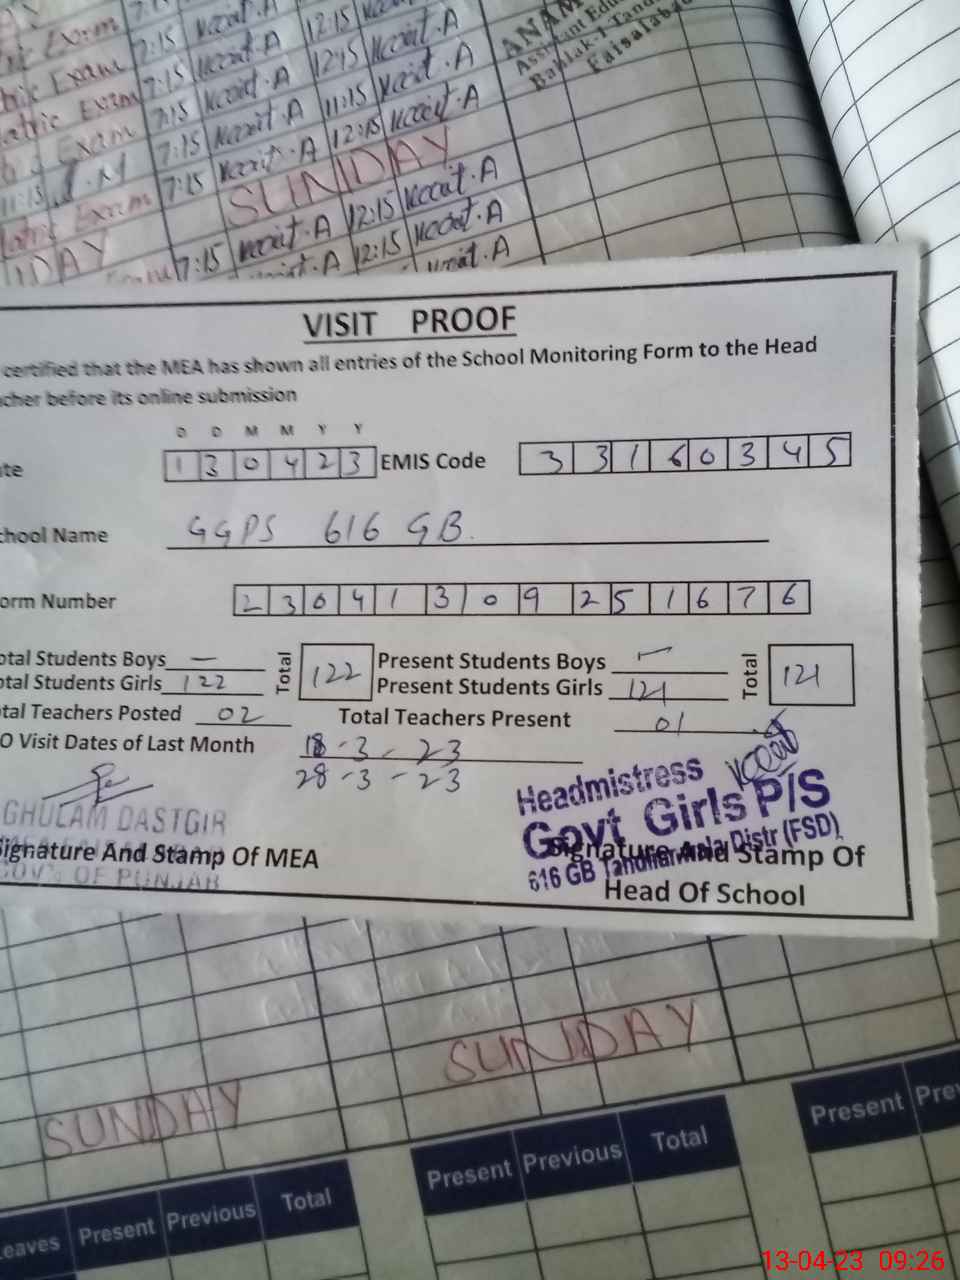 7:15 12:15
Exam 7:15 A 12:15 A
Exam 7:15 A 12:15 A
Exam 7:15 A 11:15 A
Exam 7:15 A 12:15 A
11:15 7:15 SUNDAY
Exam 7:15 A 12:15 A
DAY 7:15 A 12:15 A
ANAM
Assistant Edu
Faisalabad
VISIT PROOF
certified that the MEA has shown all entries of the School Monitoring Form to the Head
cher before its online submission
D D M M Y Y
te 1 3 0 4 2 3 EMIS Code 3 3 1 6 0 3 4 5
chool Name GGPS 616 GB.
orm Number 2 3 0 4 1 3 0 9 2 5 1 6 7 6
otal Students Boys — Total 122 Present Students Boys — Total 121
otal Students Girls 122 Present Students Girls 121
tal Teachers Posted 02 Total Teachers Present 01
O Visit Dates of Last Month 18-3-23
28-3-23
GHULAM DASTGIR
Signature And Stamp Of MEA
GOVT OF PUNJAB
Headmistress
Govt Girls P/S
616 GB Tandlianwala Distr (FSD)
Signature And Stamp Of
Head Of School
SUNDAY
SUNDAY
eaves Present Previous Total
Present Previous Total
Present Pre
13-04-23 09:26